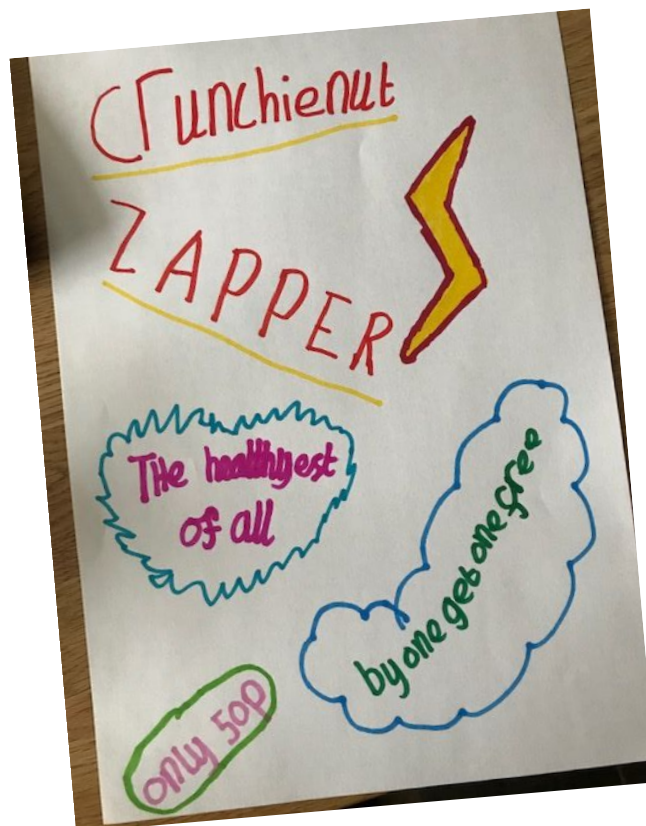 Crunchienut
ZAPPER
The healthyest
of all
by one get one free
only 50p